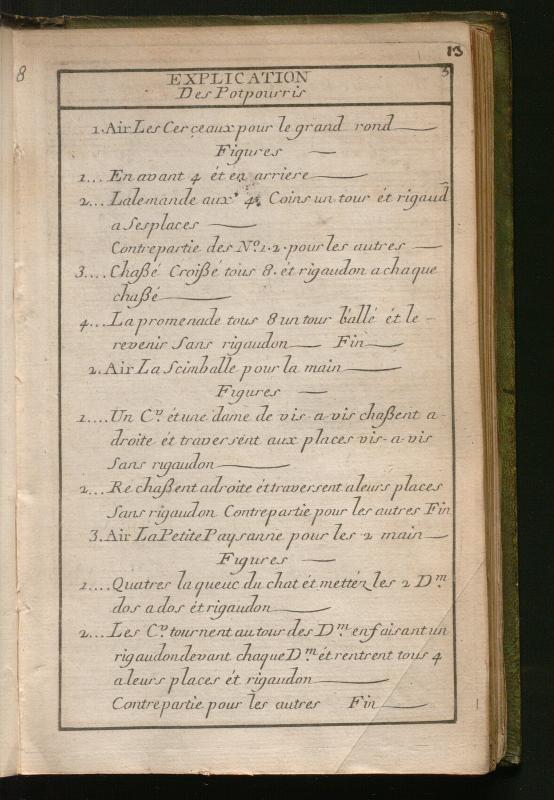 13
8
3
EXPLICATION
Des Potpourris
1. Air Les Cerçeaux pour le grand rond
Figures
1... En avant 4 ét en arriere
2... Lalemande aux 4. Coins un tour ét rigaud
a Ses places
Contrepartie des No. 1. 2. pour les autres
3.... Chaßé Croißé tous 8. ét rigaudon a chaque
chaßé
4.... La promenade tous 8 un tour ballé ét le
revenir Sans rigaudon Fin
2. Air La Scimballe pour la main
Figures
1.... Un Cr. ét une dame de vis-a-vis chaßent a
droite ét traversent aux places vis-a-vis
Sans rigaudon
2... Re chaßent a droite ét traversent a leurs places
Sans rigaudon Contrepartie pour les autres Fin
3. Air La Petite Paysanne pour les 2 main
Figures
1.... Quatres la queue du chat ét mettéz les 2 Dm.
dos a dos ét rigaudon
2... Les Cr. tournent autour des Dm. en faisant un
rigaudon devant chaque Dm. ét rentrent tous 4
a leurs places ét rigaudon
Contrepartie pour les autres Fin